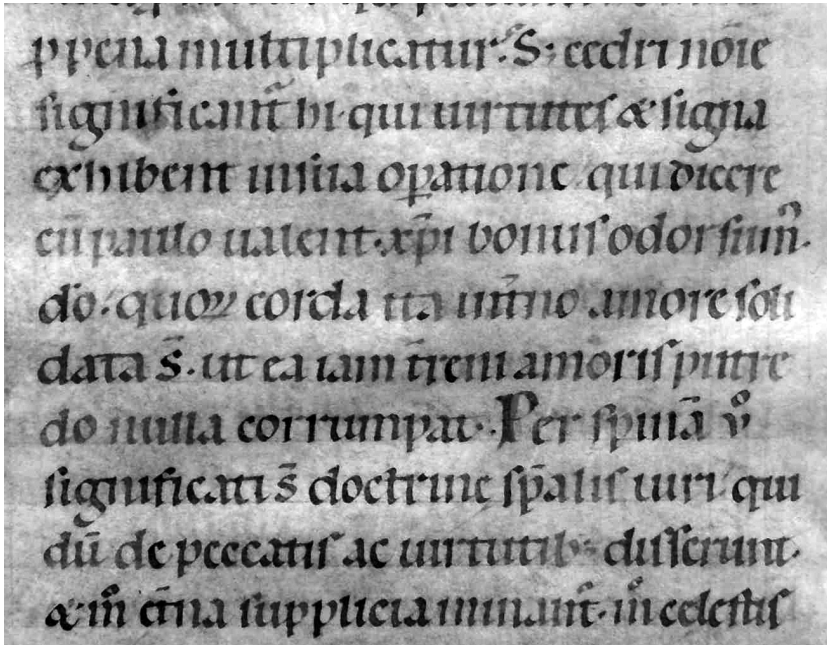 p pena multiplicatur. S; cedri nōīe
significant̄ hi. qui uirtutes & signa
exhibent in sua oꝑatione. qui dicere
cū paulo ualent. xp̄i bonus odor sum᷒.
dō. quoꝝ corda ita int̄no amore soli
data s̄. ut ea iam t̄reni amoris putre
do nulla corrumpat. Per spinā ūo
significati s̄ doctrine sp̄alis uiri qui
dū de peccatis ac uirtutib; disserunt.
& m̊ et̄na supplicia minant̄. m̊ celestis